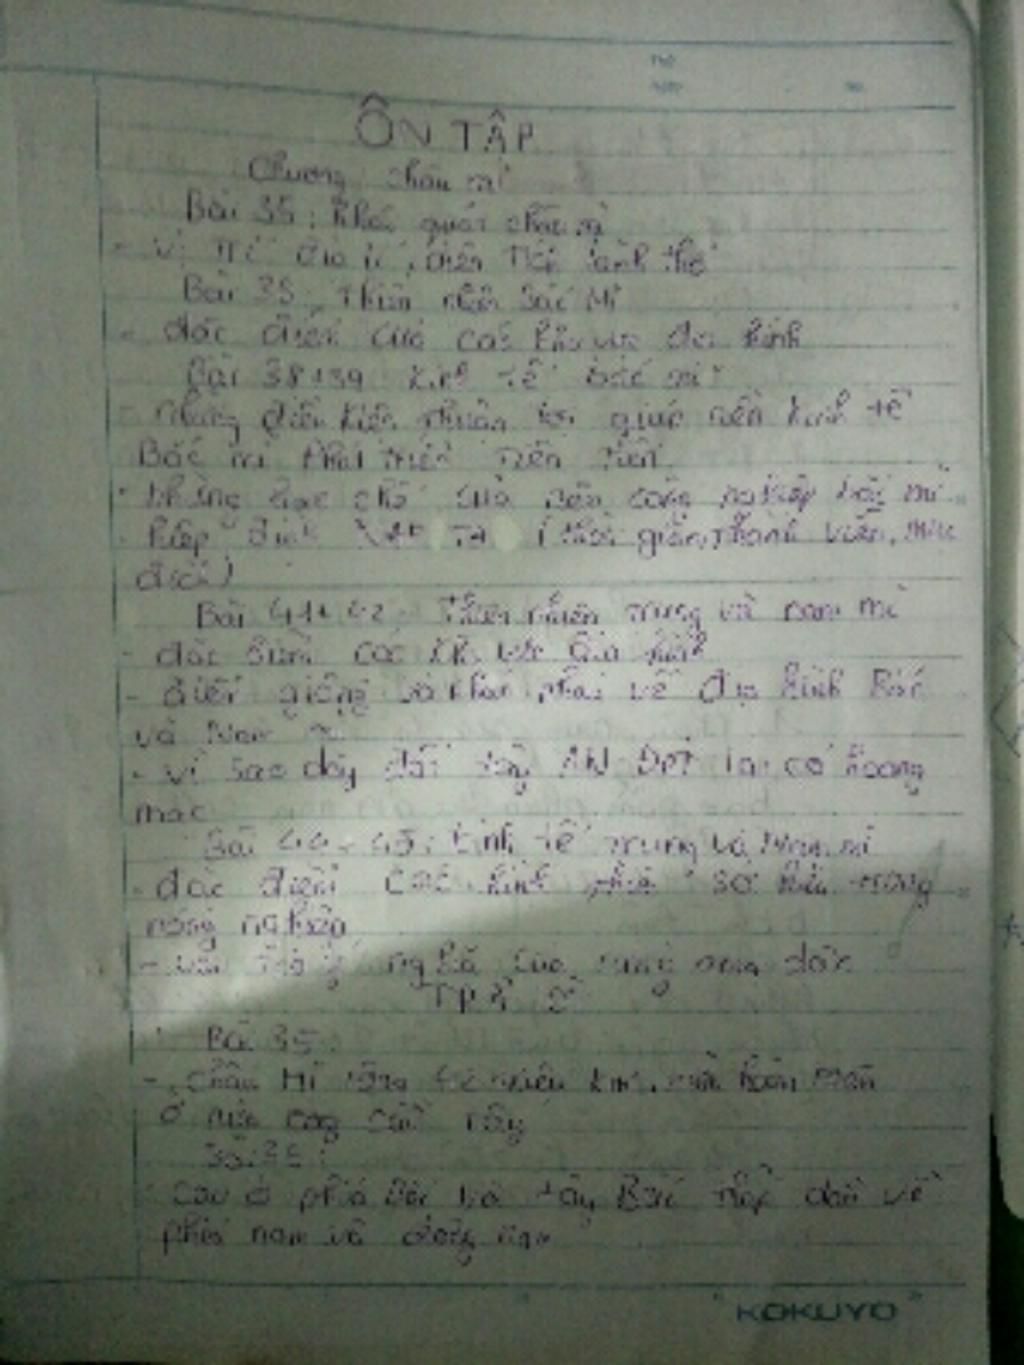 ÔN TẬP
Chương châu mĩ
Bài 35: Khái quát châu mĩ
- Vị Trí địa lí, diện Tích lãnh thổ
Bài 35: Thiên nhiên Bắc Mĩ
- đặc điểm của các khu vực địa hình
Bài 38+39 kinh tế bắc mĩ
- những điều kiện thuận lợi giúp nền kinh tế
Bắc mĩ phát triển
- những hạn chế của nền công nghiệp bắc mĩ
- hiệp định (thời gian, thành viên, mục
đích)
Bài 41+42: Thiên nhiên trung và nam mĩ
- đặc điểm các khu vực địa hình
- điểm giống và khác nhau về địa hình Bắc
và Nam mĩ
- vì sao dãy đất tây An Đét lại có hoang
mạc
Bài 44-45: kinh tế trung và Nam mĩ
- đặc điểm các hình thức sở hữu trong
nông nghiệp
- ý nghĩa của rừng
Bài 35:
- châu Mĩ rộng km, nằm hoàn toàn
ở nửa cầu Tây
Cao ở phía Bắc và tây Bắc thấp dần về
phía nam và đông nam
KOKUYO